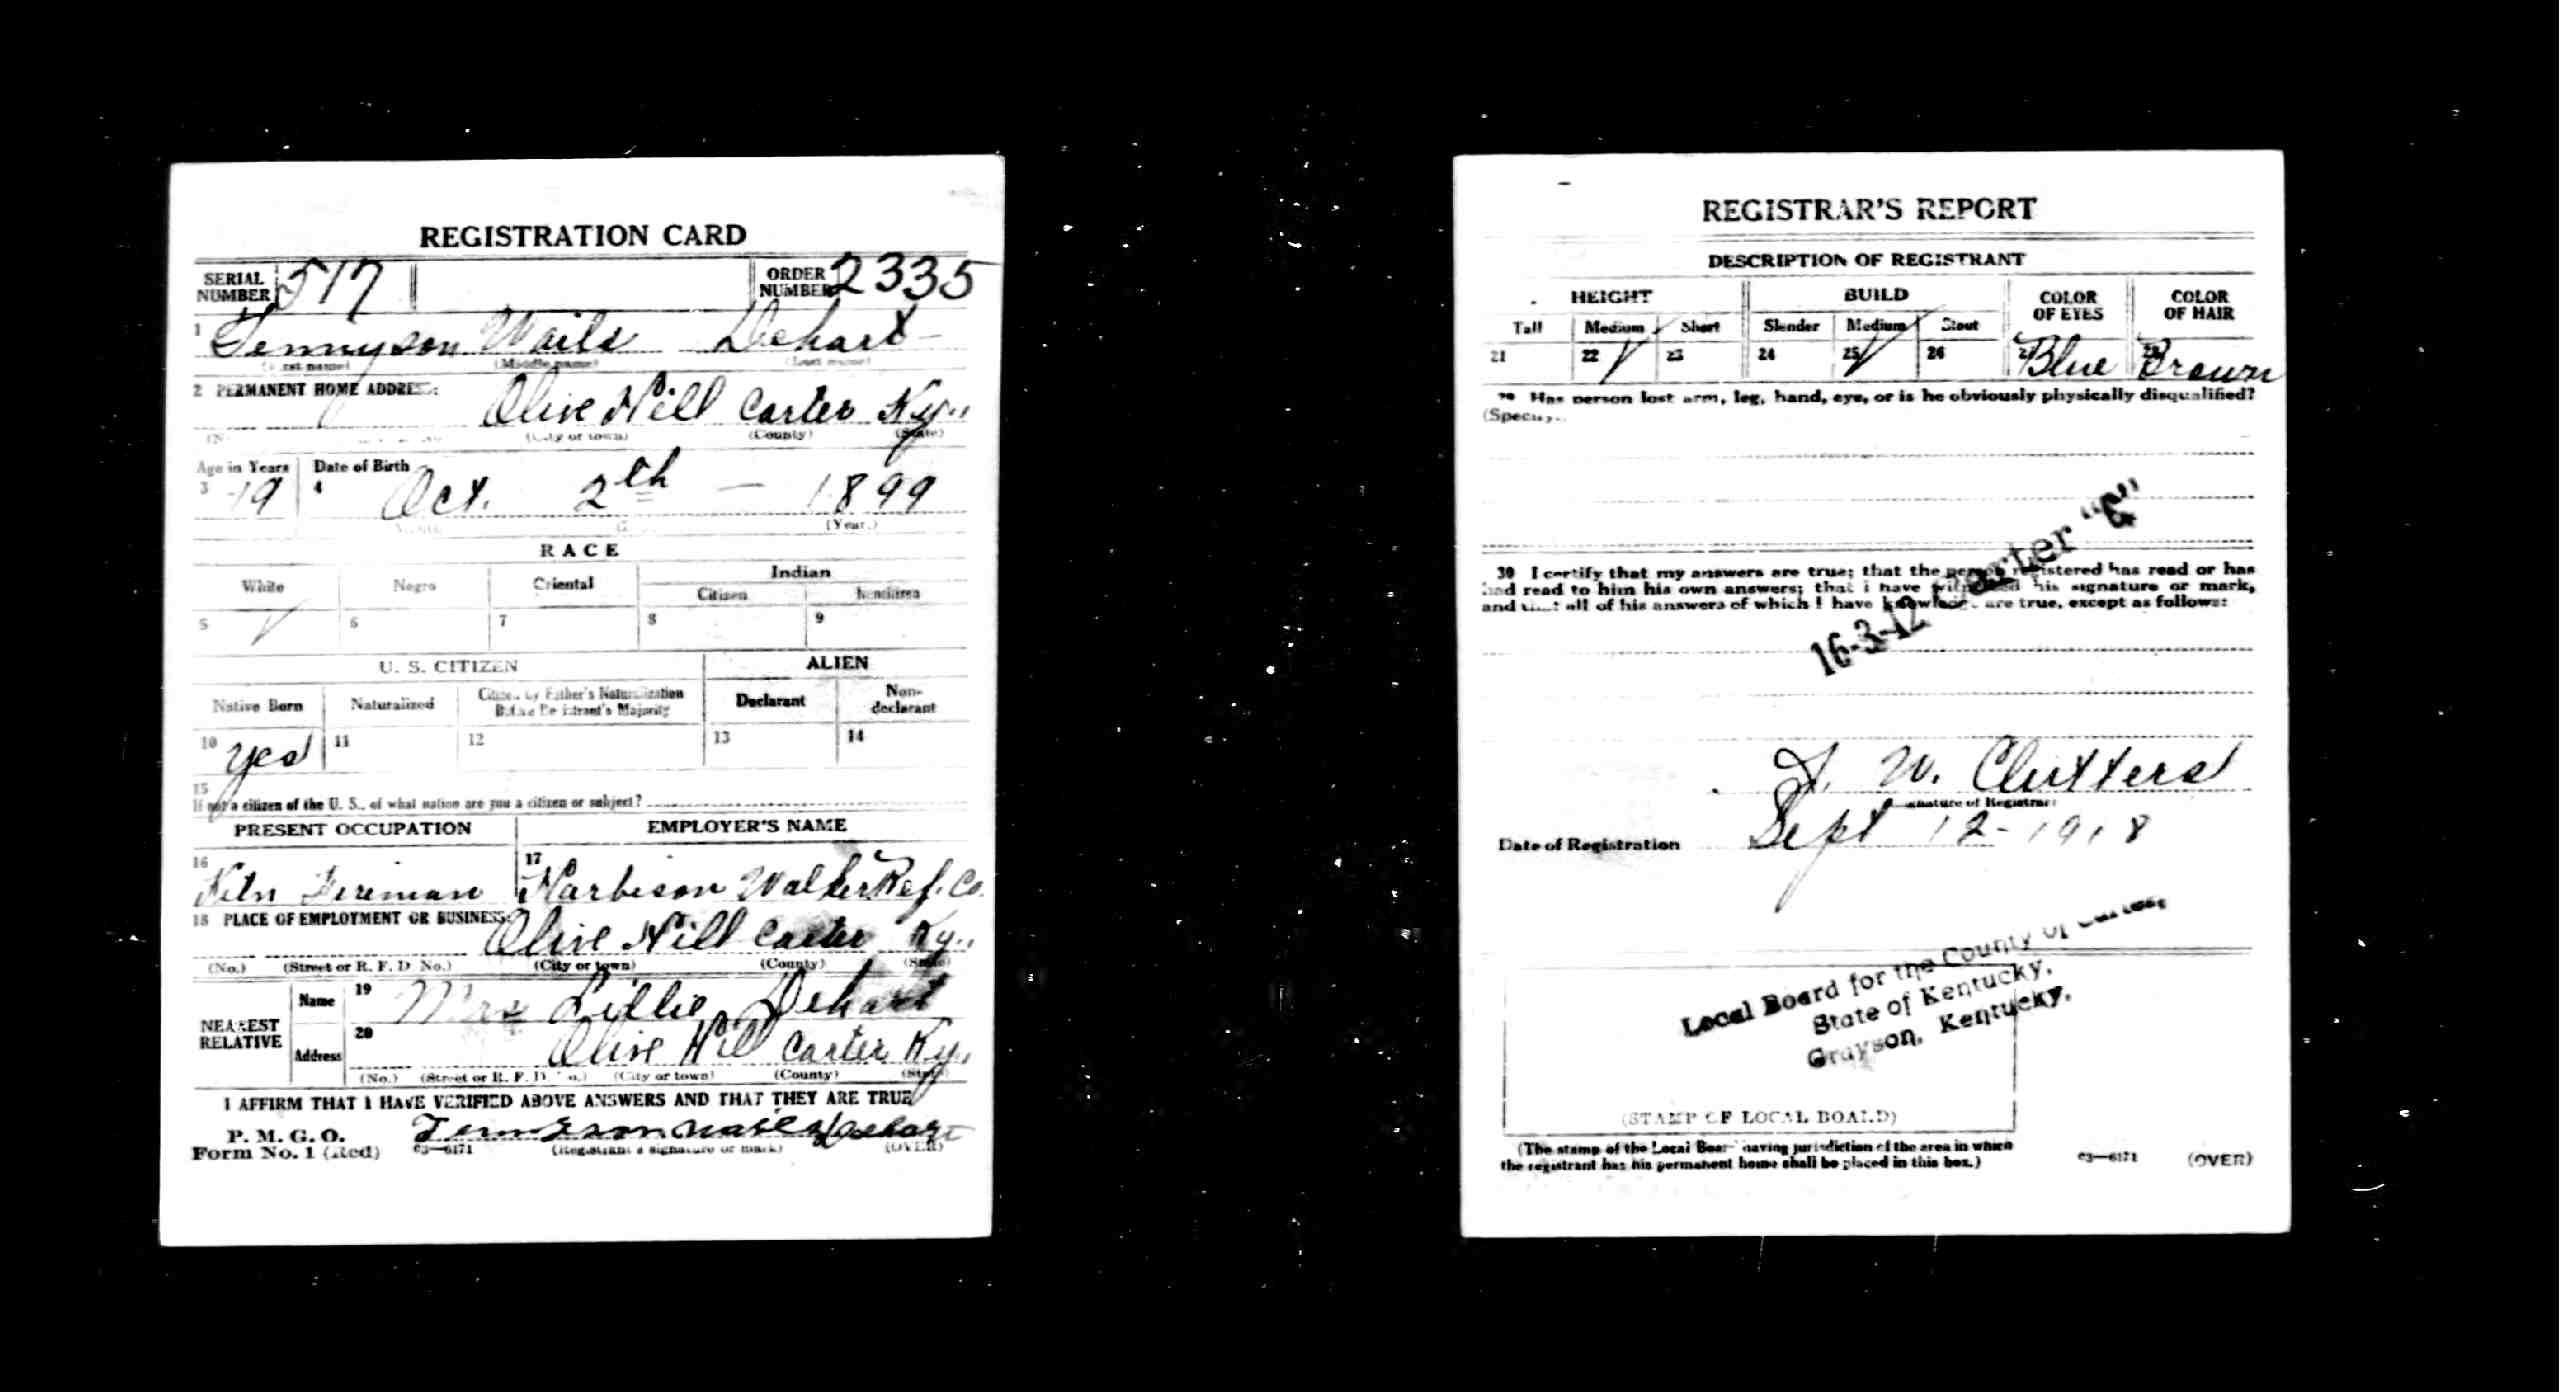 REGISTRATION CARD
SERIAL NUMBER 517 ORDER NUMBER 2335
1 Tennyson Waild Dehart
(Middle name) (Last name)
2 PERMANENT HOME ADDRESS:
Olive Hill Carter Ky.,
(City or town) (County) (State)
Age in Years Date of Birth
3 19 4 Oct. 2th — 1899
(Year.)
RACE
White Negro Oriental Indian
Citizen Noncitizen
5 ✓ 6 7 8 9
U. S. CITIZEN ALIEN
Native Born Naturalized Citizen by Father's Naturalization Before Registrant's Majority Declarant Non-declarant
10 yes 11 12 13 14
15
If not a citizen of the U. S., of what nation are you a citizen or subject?
PRESENT OCCUPATION EMPLOYER'S NAME
16 Kiln Fireman 17 Harbison Walker Ref. Co.
18 PLACE OF EMPLOYMENT OR BUSINESS:
Olive Hill Carter Ky.,
(No.) (Street or R. F. D. No.) (City or town) (County) (State)
NEAREST RELATIVE
Name 19 Mrs Lillie Dehart
Address 20 Olive Hill Carter Ky.
(No.) (Street or R. F. D. No.) (City or town) (County) (State)
I AFFIRM THAT I HAVE VERIFIED ABOVE ANSWERS AND THAT THEY ARE TRUE
P. M. G. O.
Form No. 1 (Red) 03—6171 (Registrant's signature or mark) (OVER)
REGISTRAR'S REPORT
DESCRIPTION OF REGISTRANT
HEIGHT BUILD COLOR OF EYES COLOR OF HAIR
Tall Medium Short Slender Medium Stout
21 22 ✓ 23 24 25 ✓ 26 27 Blue 28 Brown
29 Has person lost arm, leg, hand, eye, or is he obviously physically disqualified?
(Specify.)
30 I certify that my answers are true; that the person registered has read or has
had read to him his own answers; that I have witnessed his signature or mark,
and that all of his answers of which I have knowledge are true, except as follows:
16-3-12 Carter "C"
W. Clutters
(Signature of Registrar)
Date of Registration Sept 12 - 1918
Local Board for the County of Carter,
State of Kentucky,
Grayson, Kentucky.
(STAMP OF LOCAL BOARD)
(The stamp of the Local Board having jurisdiction of the area in which
the registrant has his permanent home shall be placed in this box.)
03—6171 (OVER)